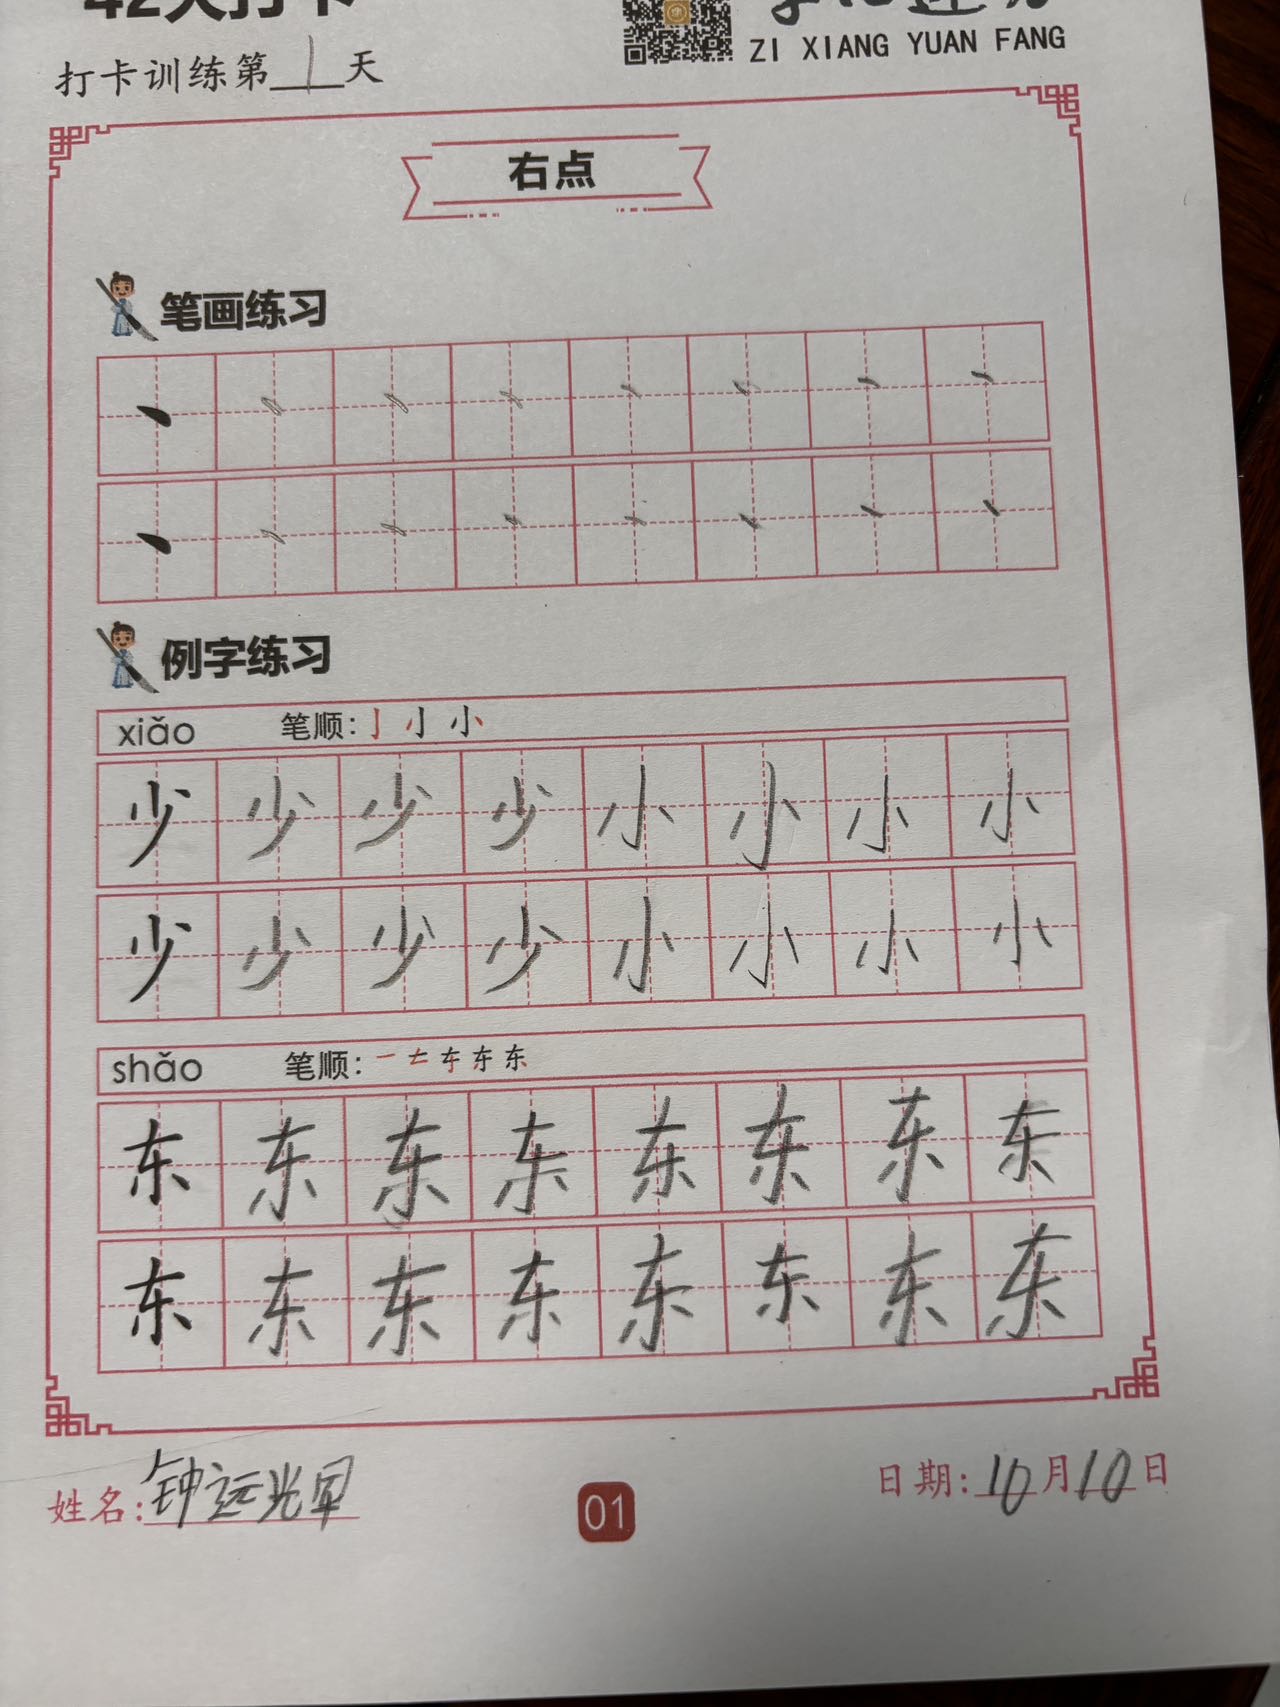 42天打卡
ZI XIANG YUAN FANG
打卡训练第1天
右点
笔画练习
例字练习
xiǎo 笔顺: 亅 小 小
少 少 少 少 小 小 小 小
少 少 少 少 小 小 小 小
shǎo 笔顺: 一 𠂇 东 东 东
东 东 东 东 东 东 东 东
东 东 东 东 东 东 东 东
姓名: 钟远光
01
日期: 10月10日